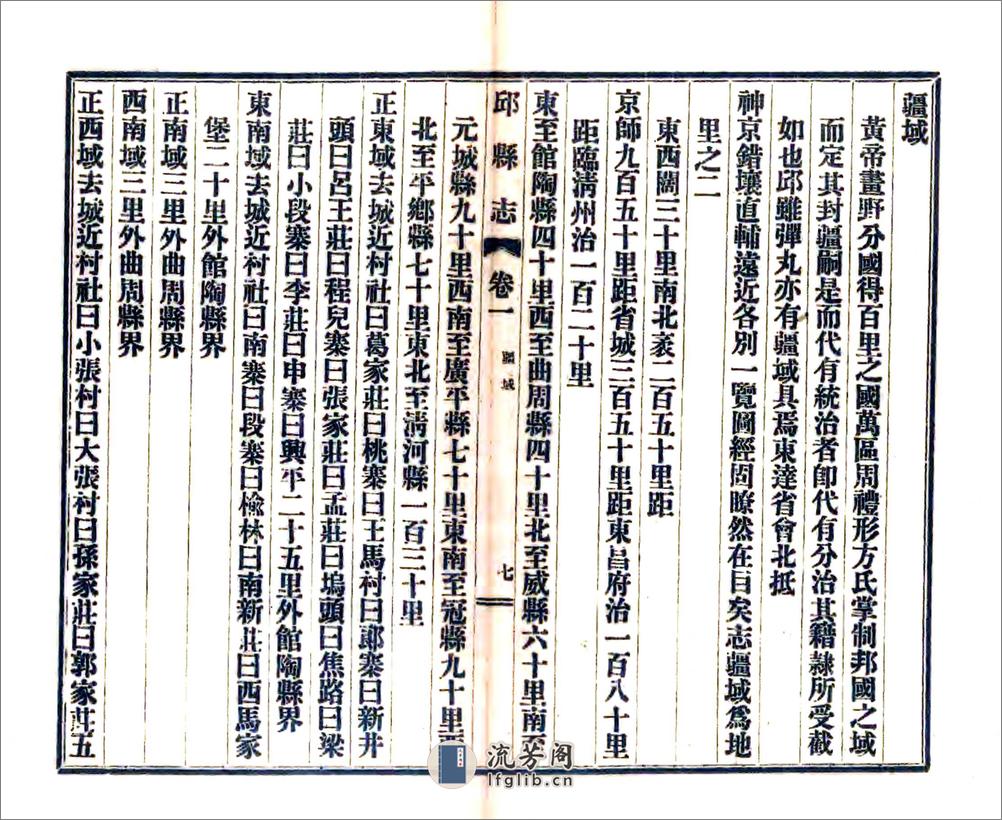 疆域
黃帝畫野分國得百里之國萬區周禮形方氏掌制邦國之域
而定其封疆嗣是而代有統治者卽代有分治其籍隷所受截
如也邱雖彈丸亦有疆域具焉東達省會北抵
神京錯壤直輔遠近各別一覽圖經固瞭然在目矣志疆域爲地
里之二
東西闊三十里南北袤二百五十里距
京師九百五十里距省城三百五十里距東昌府治一百八十里
距臨淸州治一百二十里
東至館陶縣四十里西至曲周縣四十里北至威縣六十里南至
邱縣志
卷一
疆域
七
元城縣九十里西南至廣平縣七十里東南至冠縣九十里西
北至平鄉縣七十里東北至淸河縣一百三十里
正東域去城近村社曰葛家莊曰桃寨曰王馬村曰郎寨曰新井
頭曰呂王莊曰程兒寨曰張家莊曰孟莊曰塢頭曰焦路曰梁
莊曰小段寨曰李莊曰申寨曰興平二十五里外館陶縣界
東南域去城近村社曰南寨曰段寨曰楡林曰南新莊曰西馬家
堡二十里外館陶縣界
正南域三里外曲周縣界
西南域三里外曲周縣界
正西域去城近村社曰小張村曰大張村曰孫家莊曰郭家莊五
流芳阁
lfglib.cn